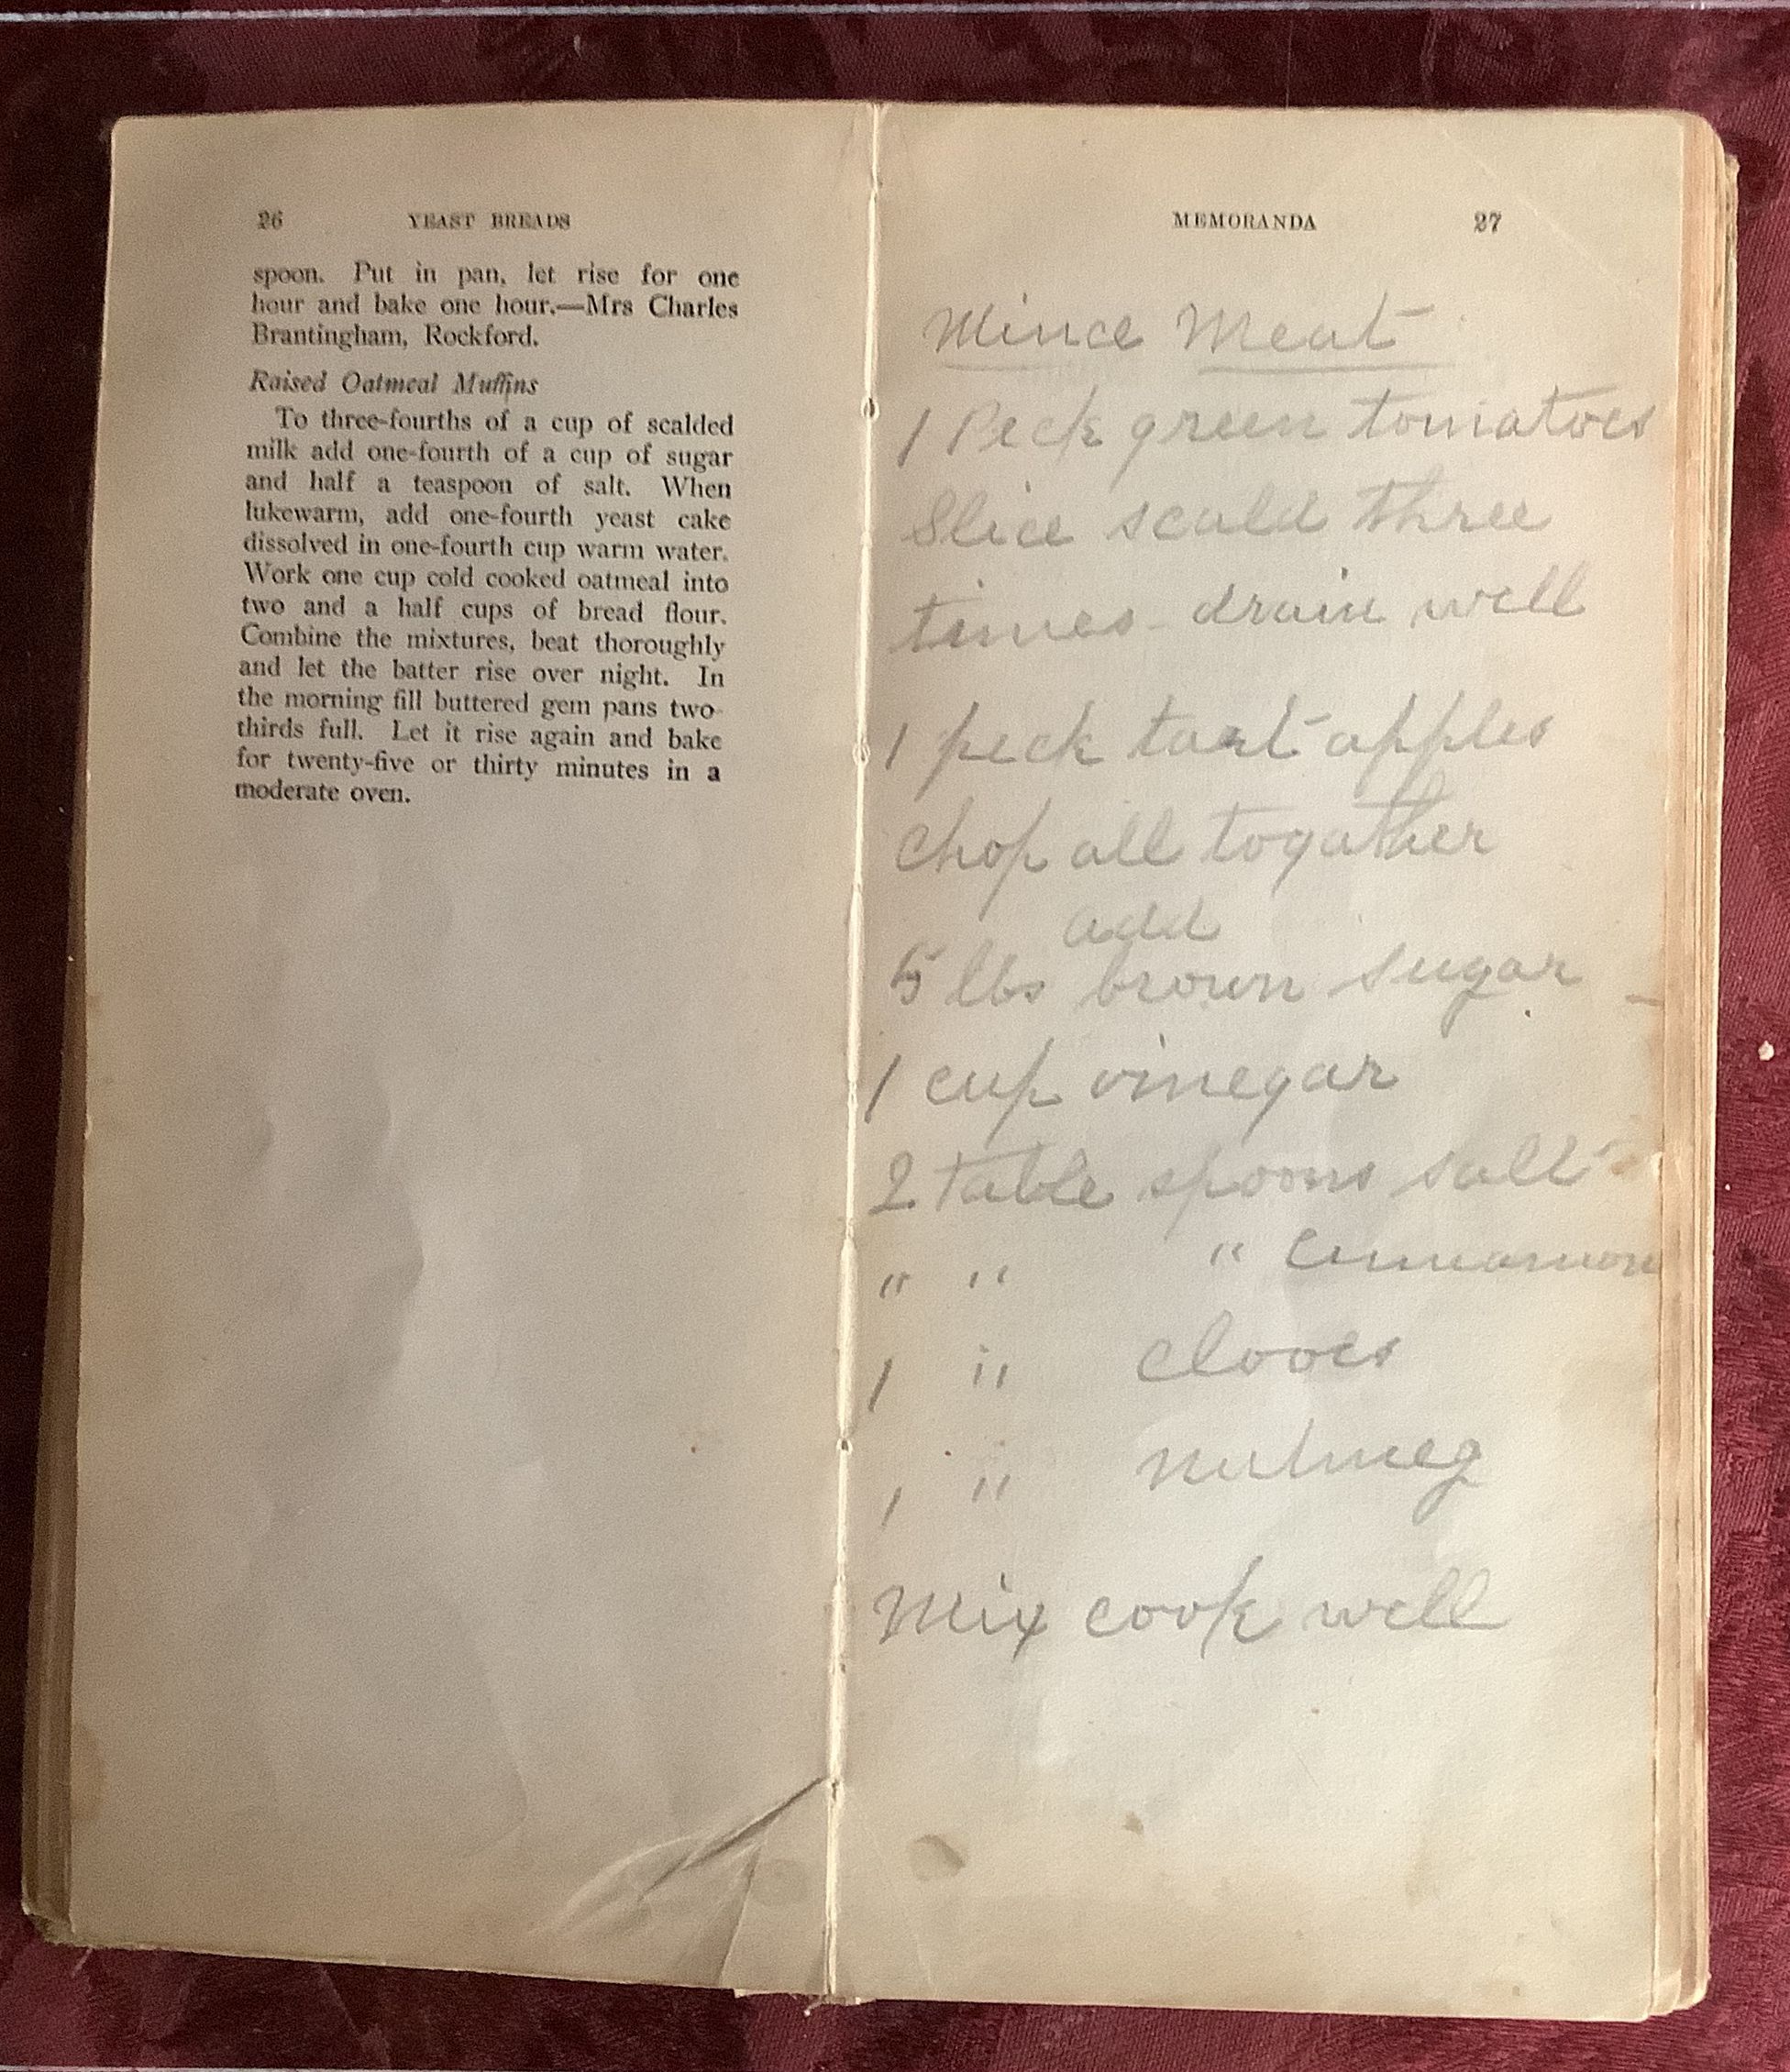 26 YEAST BREADS
spoon. Put in pan, let rise for one
hour and bake one hour.—Mrs Charles
Brantingham, Rockford.
Raised Oatmeal Muffins
To three-fourths of a cup of scalded
milk add one-fourth of a cup of sugar
and half a teaspoon of salt. When
lukewarm, add one-fourth yeast cake
dissolved in one-fourth cup warm water.
Work one cup cold cooked oatmeal into
two and a half cups of bread flour.
Combine the mixtures, beat thoroughly
and let the batter rise over night. In
the morning fill buttered gem pans two-
thirds full. Let it rise again and bake
for twenty-five or thirty minutes in a
moderate oven.
MEMORANDA 27
Mince Meat
1 Peck green tomatoes
Slice scald three
times - drain well
1 peck tart apples
Chop all togather
add
5 lbs brown sugar -
1 cup vinegar
2 table spoons salt
" " " Cinnamon
1 " cloves
1 " nutmeg
Mix cook well